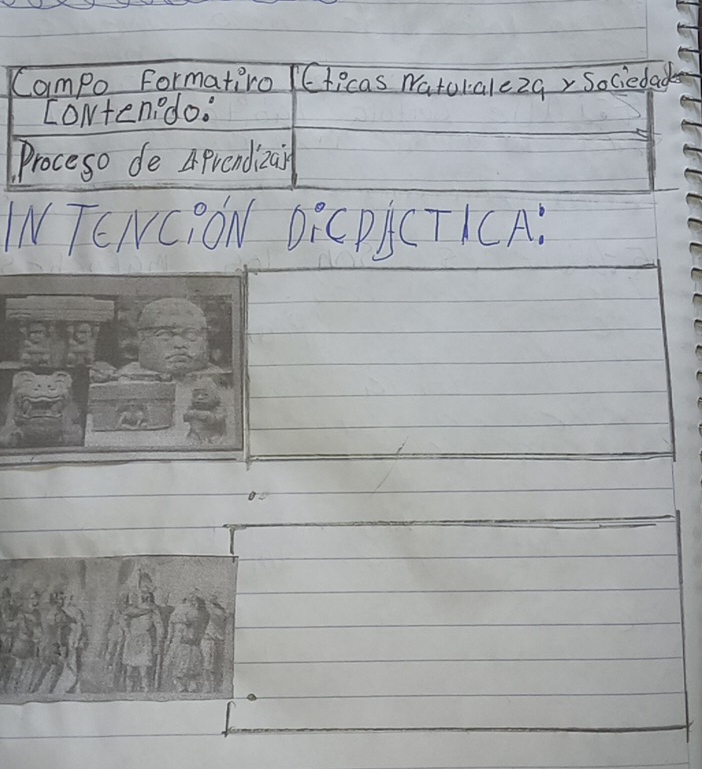 Campo Formatiro Eticas Naturaleza y Sociedad
Contenido:
Proceso de Aprendizaj
INTENCIÓN DiCDÁCTICA: